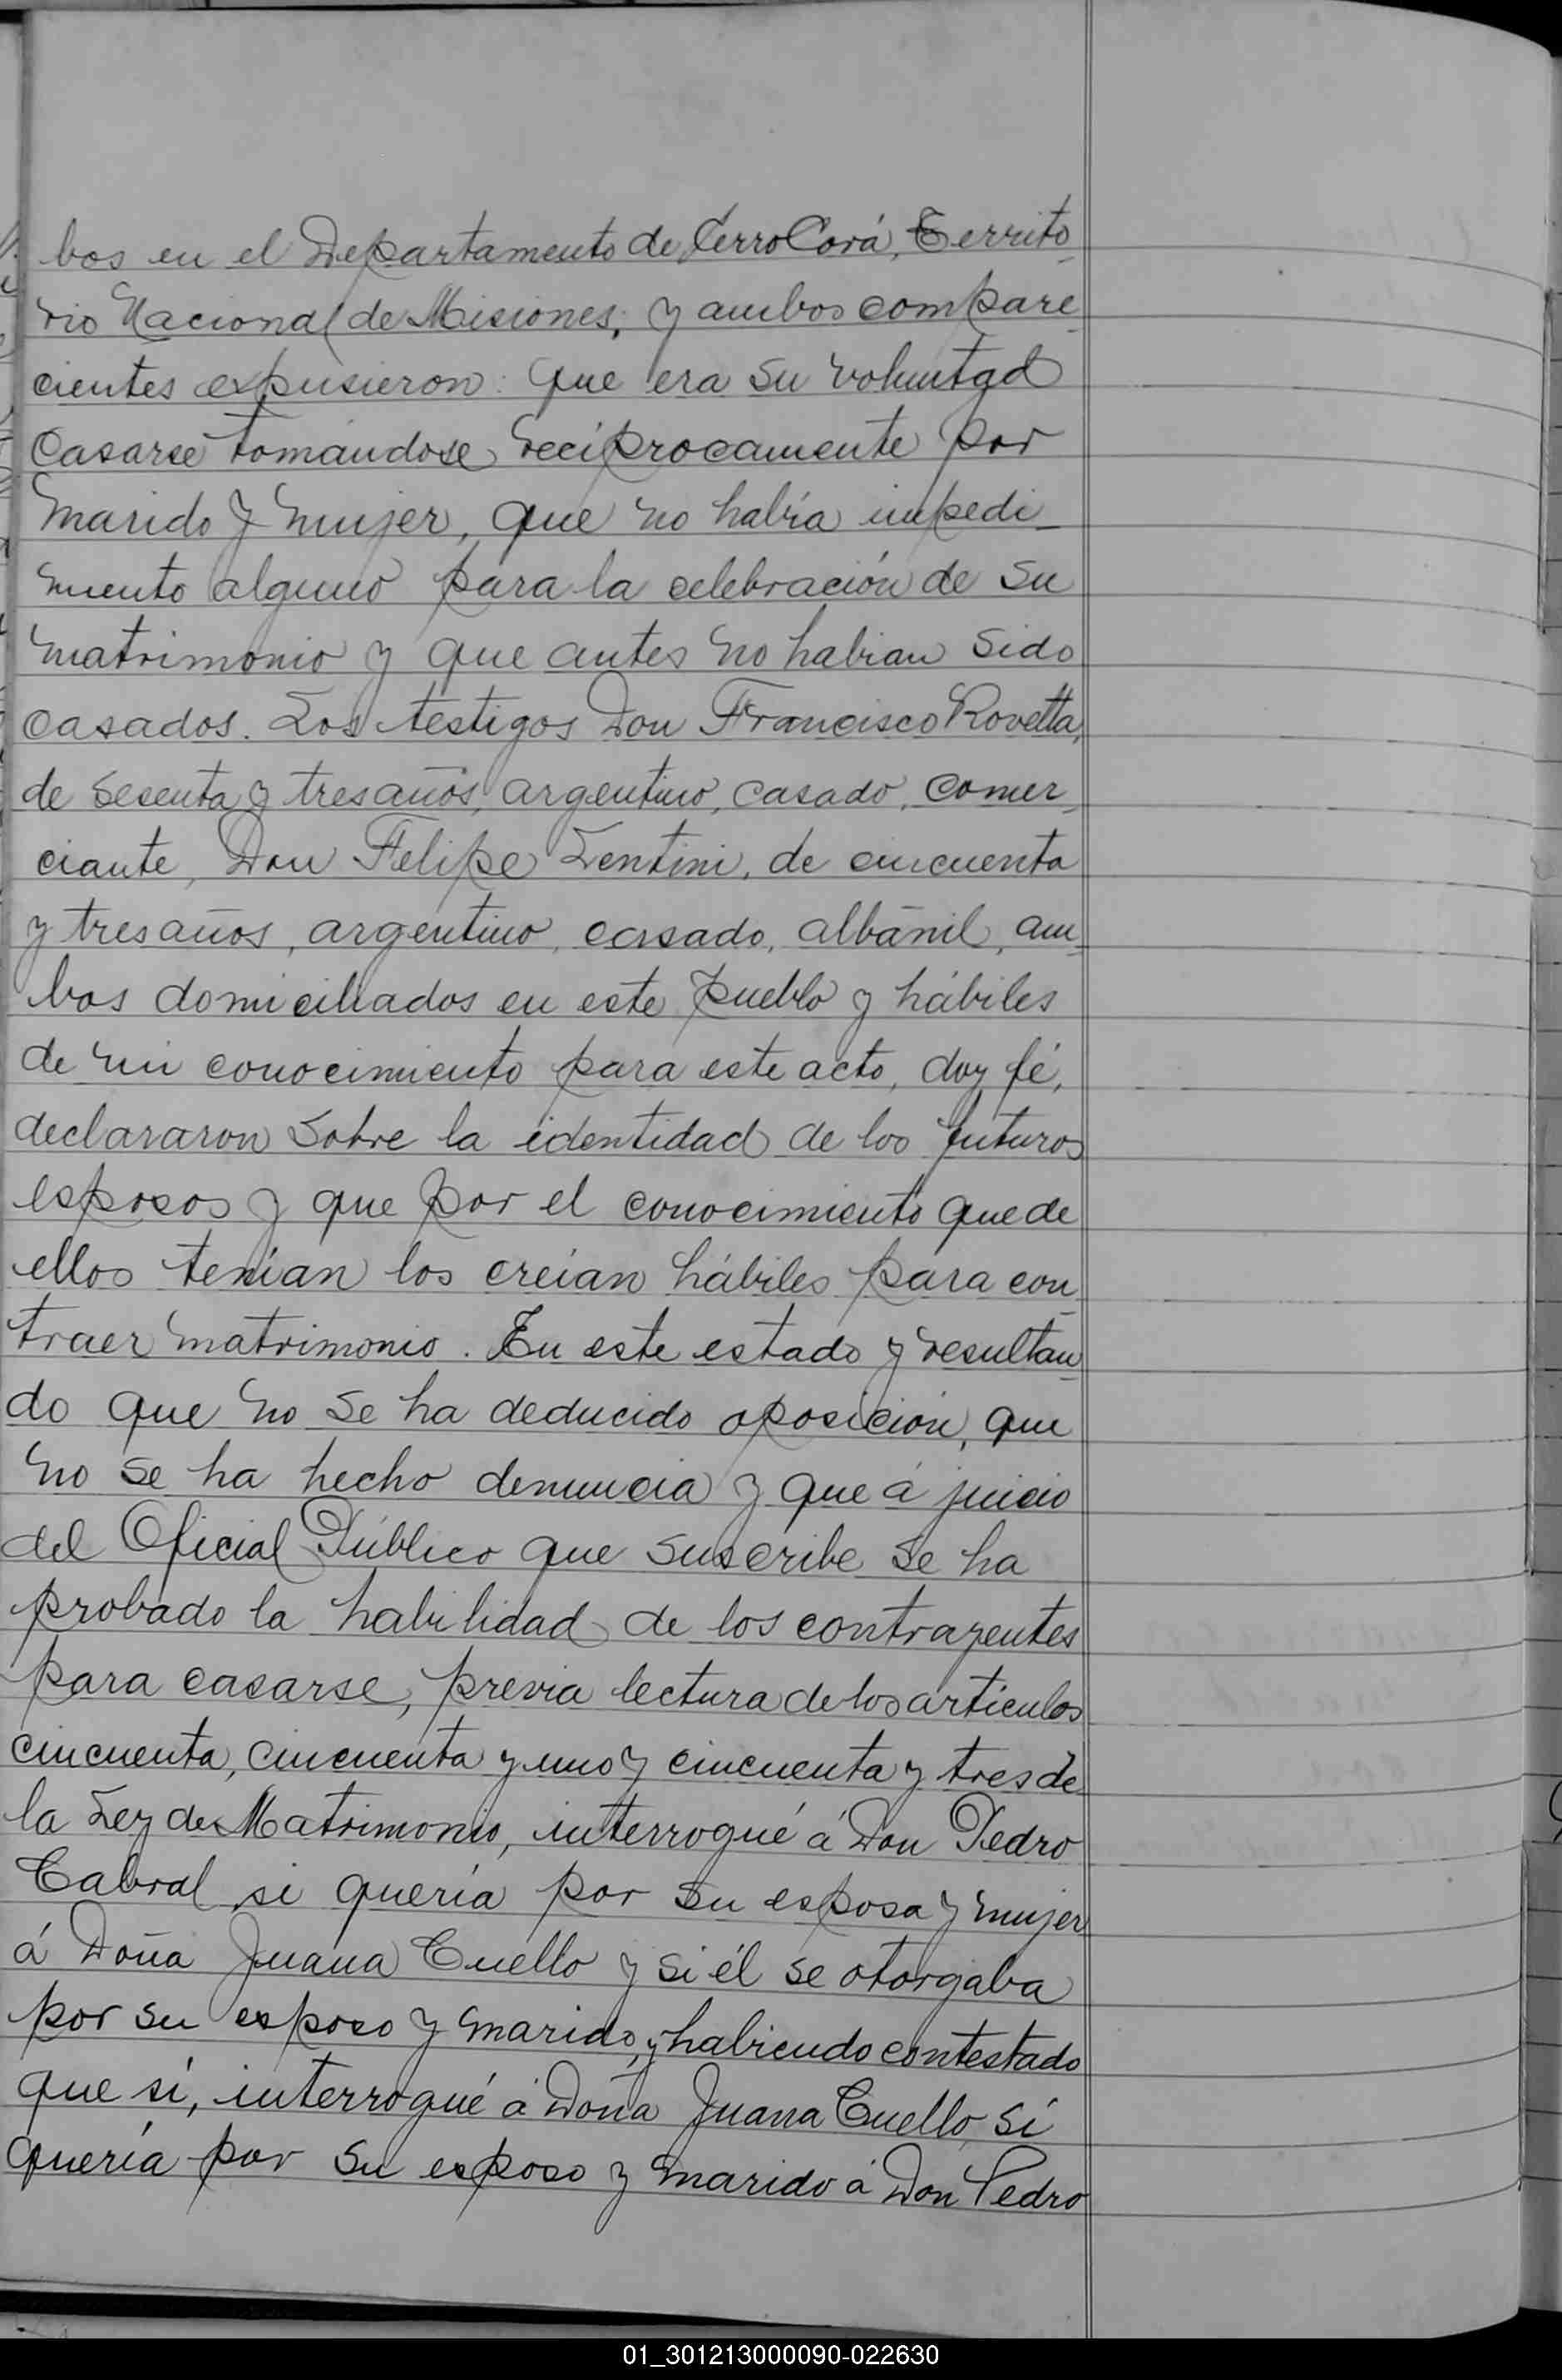 bos en el Departamento de Cerro Corá, Territo-
rio Nacional de Misiones; y ambos compare-
cientes expusieron: Que era su voluntad
casarse tomándose recíprocamente por
marido y mujer, que no había impedi-
mento alguno para la celebración de su
matrimonio y que antes no habian sido
casados. Los testigos Don Francisco Rovetta,
de sesenta y tres años, argentino, casado, comer-
ciante, Don Felipe Lentini, de cincuenta
y tres años, argentino, casado, albañil, am-
bos domiciliados en este pueblo y hábiles
de mi conocimiento para este acto, doy fé,
declararon sobre la identidad de los futuros
esposos y que por el conocimiento que de
ellos tenían los creían hábiles para con-
traer matrimonio. En este estado y resultan-
do que no se ha deducido oposición, que
no se ha hecho denuncia y que á juicio
del Oficial Público que suscribe se ha
probado la habilidad de los contrayentes
para casarse, previa lectura de los artículos
cincuenta, cincuenta y uno y cincuenta y tres de
la Ley de Matrimonio, interrogué á Don Pedro
Cabral si quería por su esposa y mujer
á Doña Juana Cuello y si él se otorgaba
por su esposo y marido, y habiendo contestado
que sí, interrogué á Doña Juana Cuello si
quería por su esposo y marido á Don Pedro
01_301213000090-022630